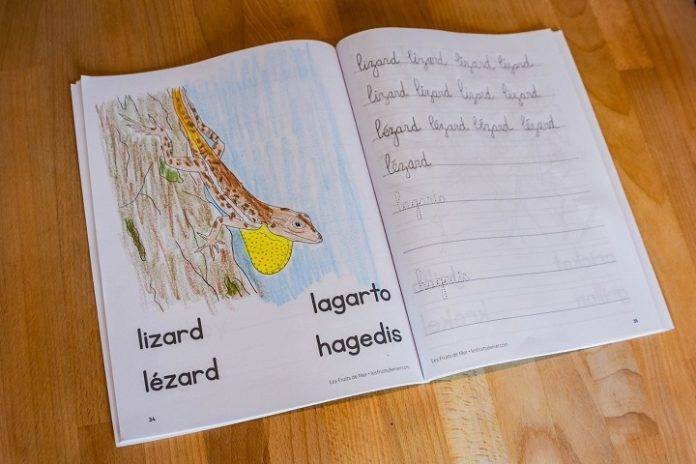 lizard
lézard
lagarto
hagedis
Les Fruits de Mer • lesfruitsdemer.com
34
lizard lizard lizard lizard
lizard lizard lizard lizard
lézard lézard lézard lézard
lézard
lagarto
hagedis
Les Fruits de Mer • lesfruitsdemer.com
35